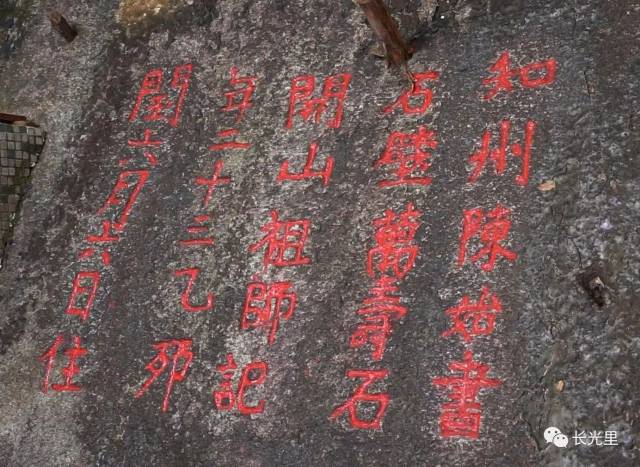 知州陳始書
石壁萬壽石
開山祖師記
年二十三乙夘
閏六月六日住
长光里